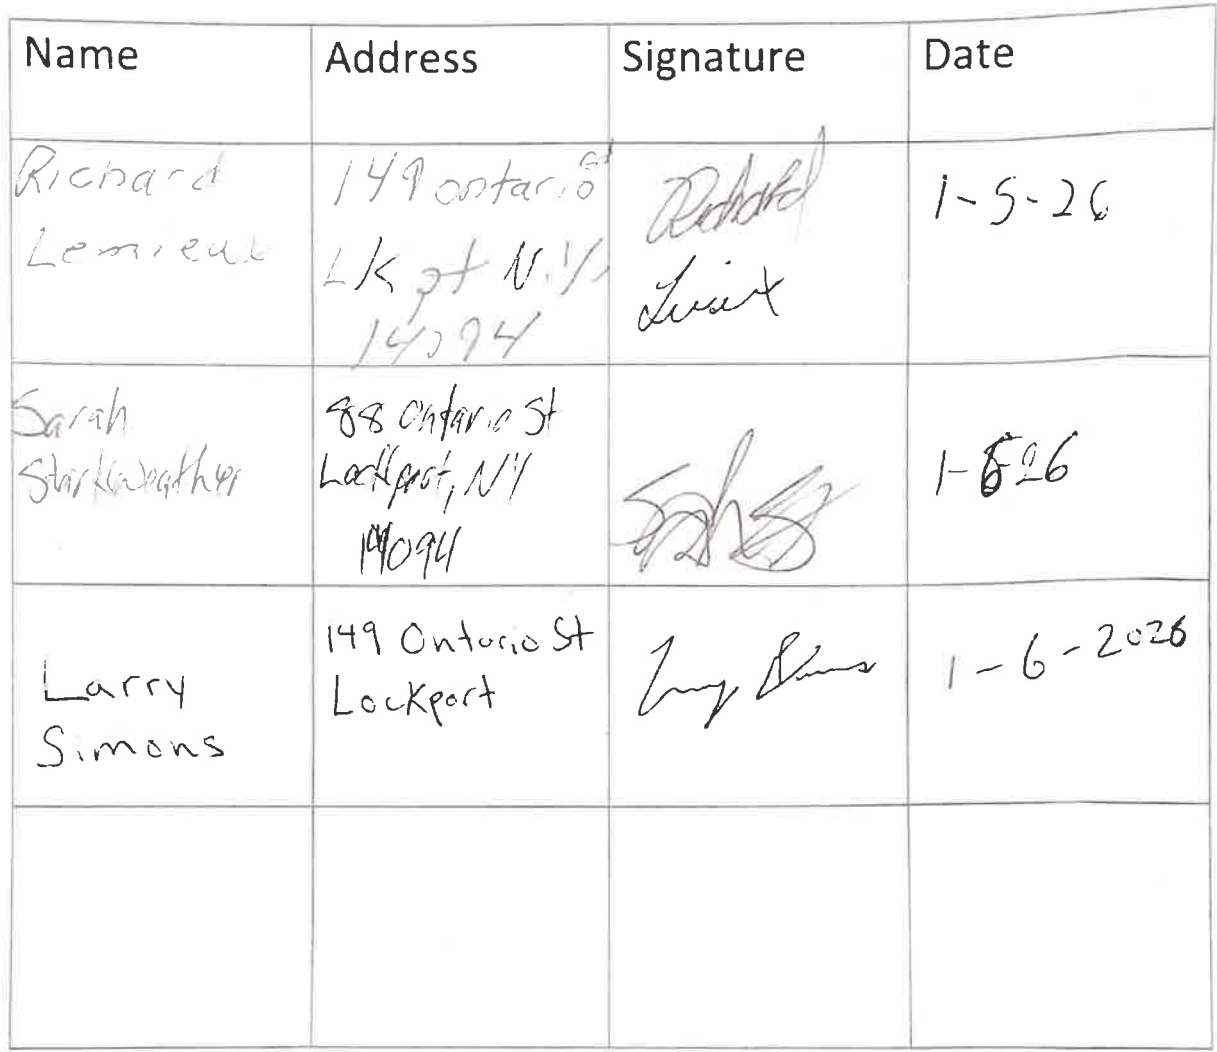 Name Address Signature Date
Richard
Lemieux
149 ontario St
Lkpt N.Y.
14094
Richard
1-5-26
Sarah
Starkweather
88 Ontario St
Lockport, NY
14094
1-6-26
Larry
Simons
149 Ontario St
Lockport
Larry Simons
1-6-2026